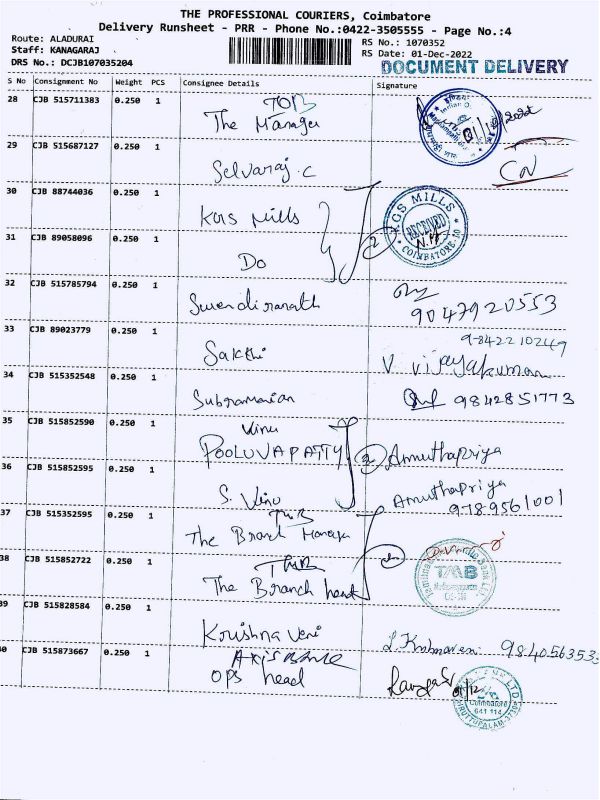 THE PROFESSIONAL COURIERS, Coimbatore
Delivery Runsheet - PRR - Phone No.:0422-3505555 - Page No.:4
Route: ALADURAI
Staff: KANAGARAJ
DRS No.: DCJB107035204
RS No.: 1070352
RS Date: 01-Dec-2022
DOCUMENT DELIVERY
S No Consignment No Weight PCS Consignee Details Signature
28 CJB 515711383 0.250 1
The Manager
29 CJB 515687127 0.250 1
Selvaraj.C
30 CJB 88744036 0.250 1
KGS Mills
KGS MILLS
RECEIVED
COIMBATORE-10
31 CJB 89058096 0.250 1
Do
2
32 CJB 515785794 0.250 1
9047920553
33 CJB 89023779 0.250 1
Sakthi
9842210249
V. Vijayakumar
34 CJB 515352548 0.250 1
Subramanian
9842851773
35 CJB 515852590 0.250 1
Vinu
POOLUVAPATTY
2 Amuthapriya
36 CJB 515852595 0.250 1
S. Vinu
Amuthapriya
9789561001
37 CJB 515352595 0.250 1
TMB
The Branch Manager
38 CJB 515852722 0.250 1
TMB
The Branch head
TMB
39 CJB 515828584 0.250 1
Krishna Veni
984056353
40 CJB 515873667 0.250 1
AXIS BANK
OPS head
01/12
Coimbatore
641 114